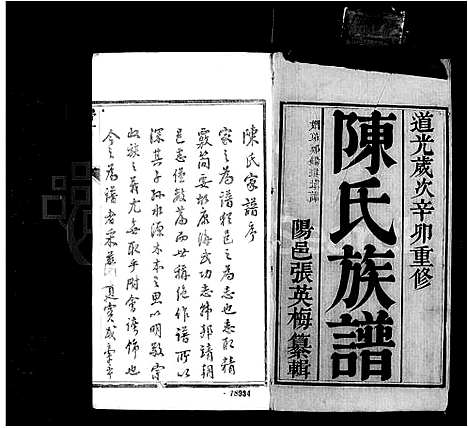 道光歲次辛卯重修
陳氏族譜
陽邑張英梅纂輯
陳氏家譜序
家之為譜猶邑之為志也志取精
嚴簡要如康海武功志韓邦靖朝
邑志僅數篇而世稱絕作譜所以
深其子孫水源木本之思以明敬宗
收族之義尤安取乎附會誇飾也
今之為譜者采
18934